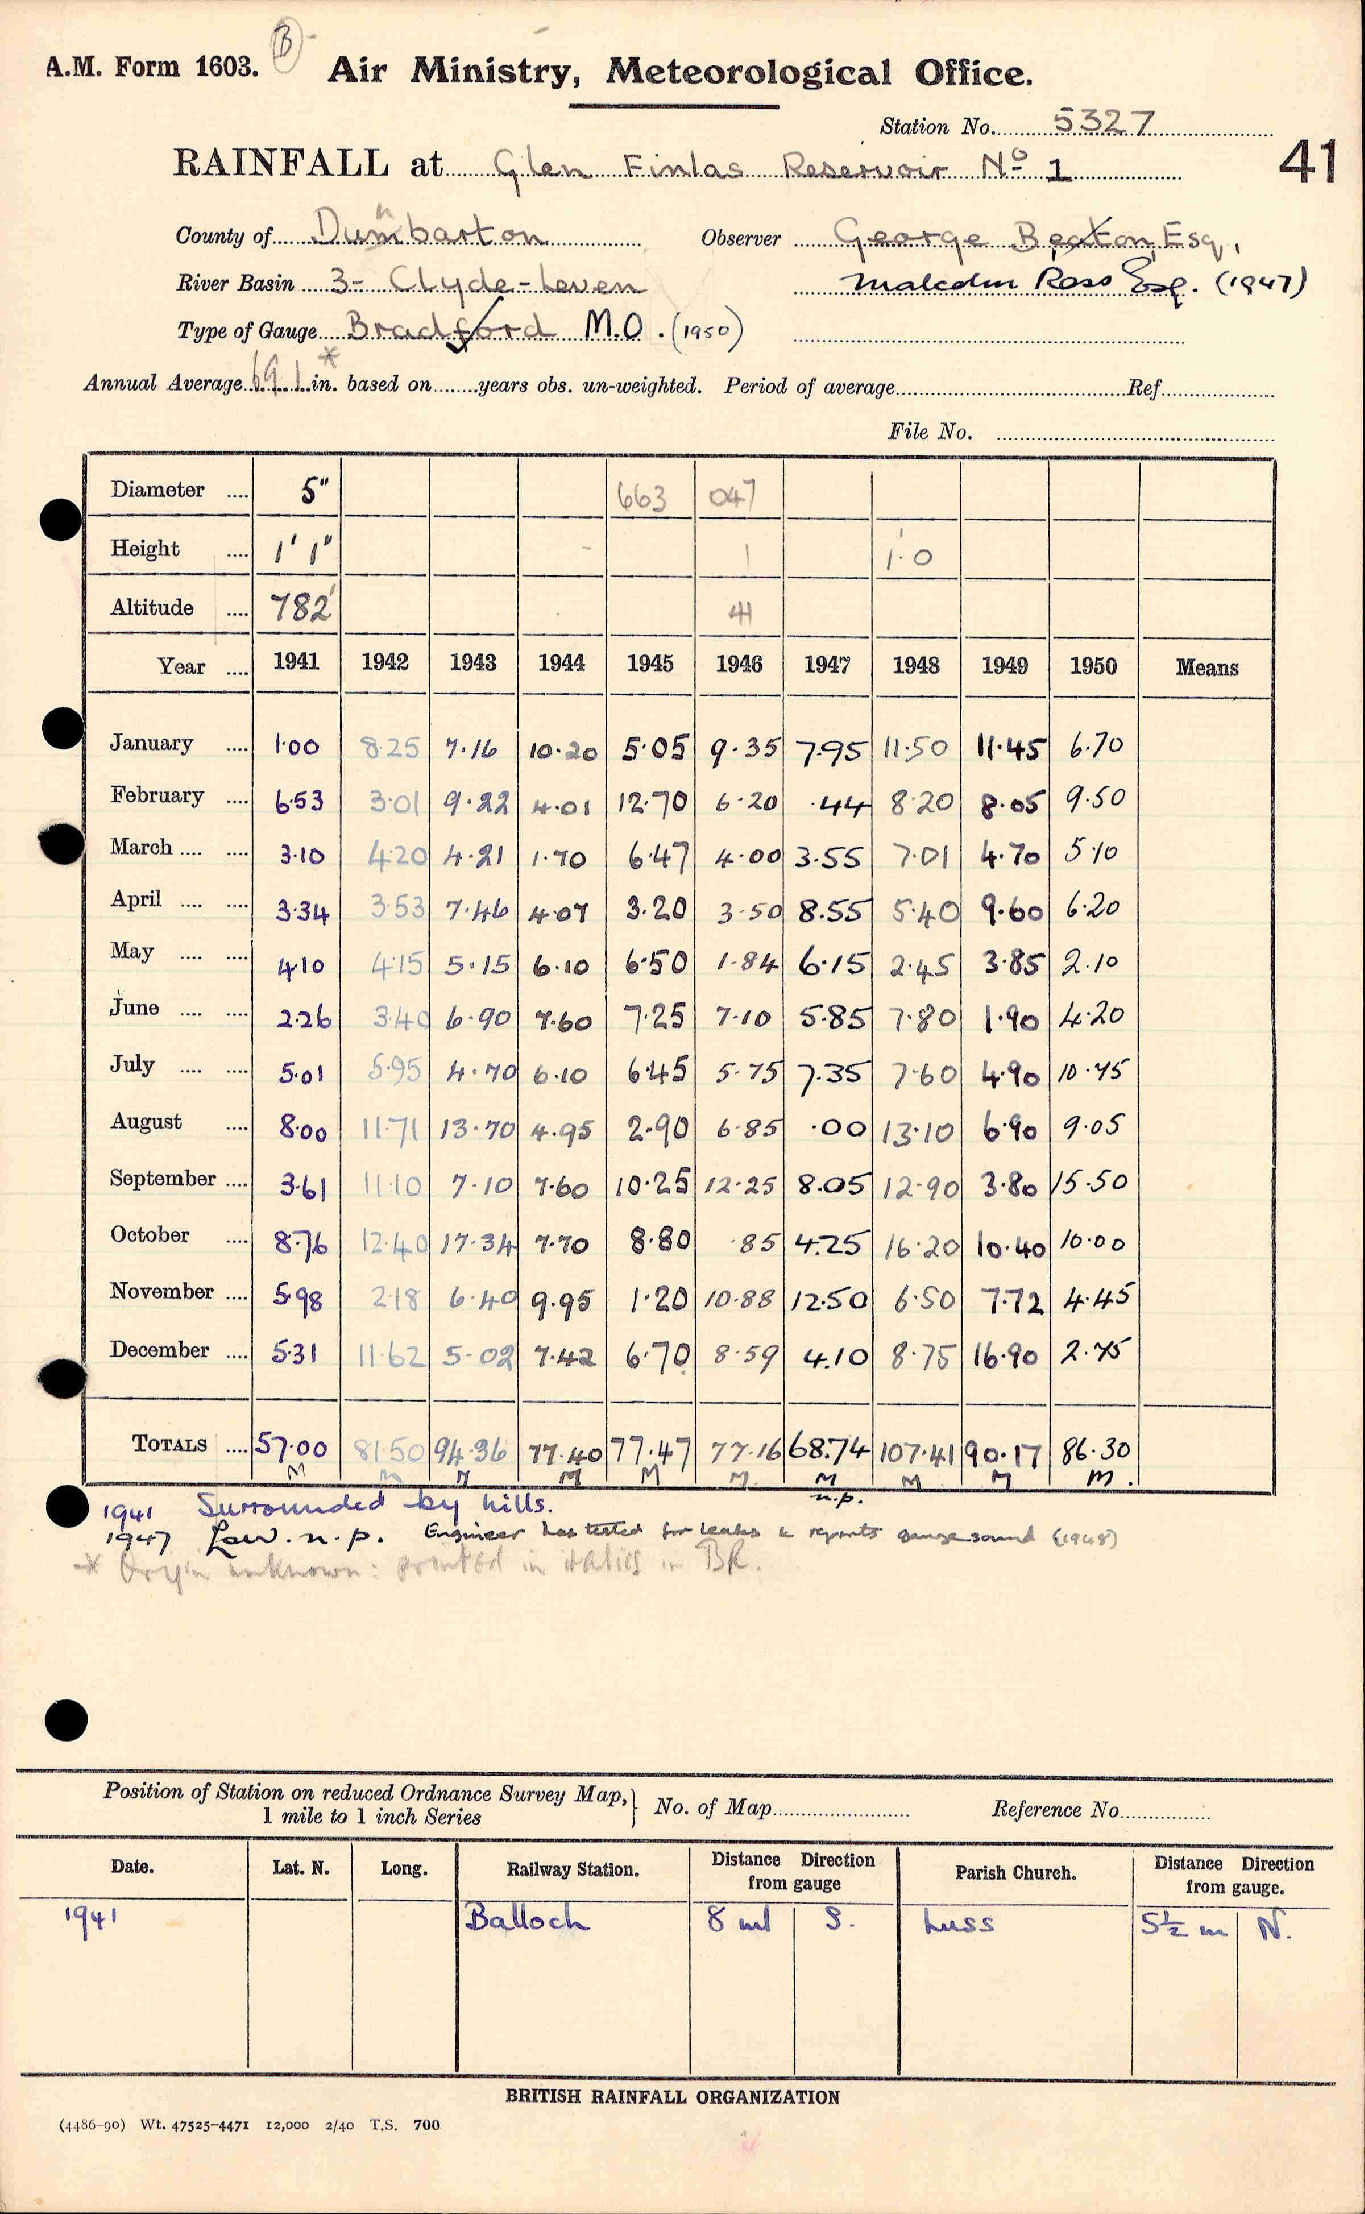 A.M. Form 1603. B Air Ministry, Meteorological Office.
Station No. 5327
RAINFALL at Glen Finlas Reservoir No 1 41
County of Dumbarton Observer George Beaton, Esq,
River Basin 3- Clyde-Leven Malcolm Ross Esq. (1947)
Type of Gauge Bradford M.O. (1950)
Annual Average 69.1 * in. based on years obs. un-weighted. Period of average Ref.
File No.
Diameter 5" 663 047
Height 1' 1" 1 1'·0
Altitude 782' 41
Year 1941 1942 1943 1944 1945 1946 1947 1948 1949 1950 Means
January 1·00 8·25 7·16 10·20 5·05 9·35 7·95 11·50 11·45 6·70
February 6·53 3·01 9·22 4·01 12·70 6·20 ·44 8·20 8·05 9·50
March 3·10 4·20 4·21 1·70 6·47 4·00 3·55 7·01 4·70 5·10
April 3·34 3·53 7·46 4·07 3·20 3·50 8·55 5·40 9·60 6·20
May 4·10 4·15 5·15 6·10 6·50 1·84 6·15 2·45 3·85 2·10
June 2·26 3·40 6·90 7·60 7·25 7·10 5·85 7·80 1·90 4·20
July 5·01 5·95 4·70 6·10 6·45 5·75 7·35 7·60 4·90 10·75
August 8·00 11·71 13·70 4·95 2·90 6·85 ·00 13·10 6·90 9·05
September 3·61 11·10 7·10 7·60 10·25 12·25 8·05 12·90 3·80 15·50
October 8·76 12·40 17·34 7·70 8·80 ·85 4·25 16·20 10·40 10·00
November 5·98 2·18 6·40 9·95 1·20 10·88 12·50 6·50 7·72 4·45
December 5·31 11·62 5·02 7·42 6·70 8·59 4·10 8·75 16·90 2·75
TOTALS 57·00 81·50 94·36 77·40 77·47 77·16 68·74 107·41 90·17 86·30
M M M M M M. M M M M.
n.p.
1941 Surrounded by hills.
1947 Low. n.p. Engineer has tested for leaks & reports gauge sound (1948)
* Origin unknown: printed in italics in BR.
Position of Station on reduced Ordnance Survey Map, No. of Map Reference No.
1 mile to 1 inch Series
Date. Lat. N. Long. Railway Station. Distance Direction from gauge Parish Church. Distance Direction from gauge.
1941 Balloch 8 ml S. Luss 5½ m N.
BRITISH RAINFALL ORGANIZATION
(4486-90) Wt. 47525-4471 12,000 2/40 T.S. 700